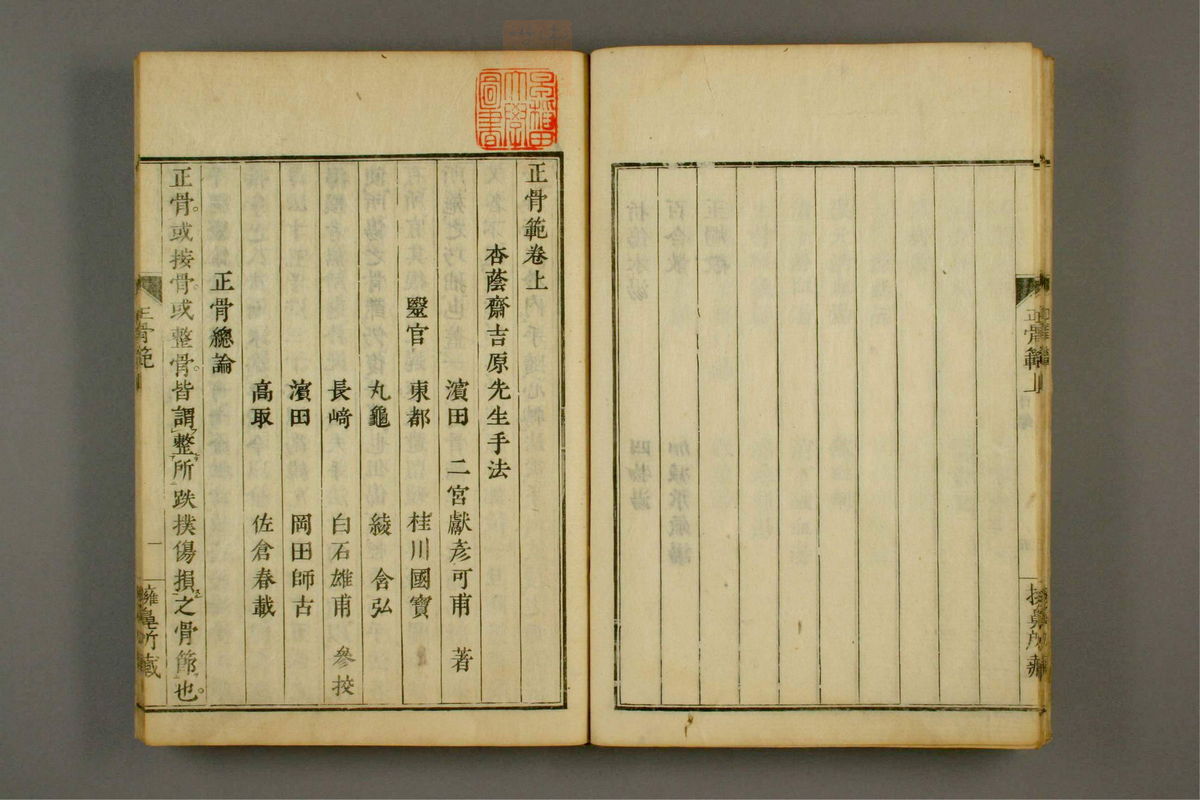 正骨範上
早稲田大学図書
正骨範卷上
杏蔭齋吉原先生手法
濱田 二宮獻彥可甫 著
毉官 東都 桂川國寶
丸龜 綾 合弘
長﨑 白石雄甫 參挍
濱田 岡田師古
高取 佐倉春載
正骨總論
正骨。或接骨。或整骨。皆謂整所跌撲傷損之骨節也。
正骨範
一